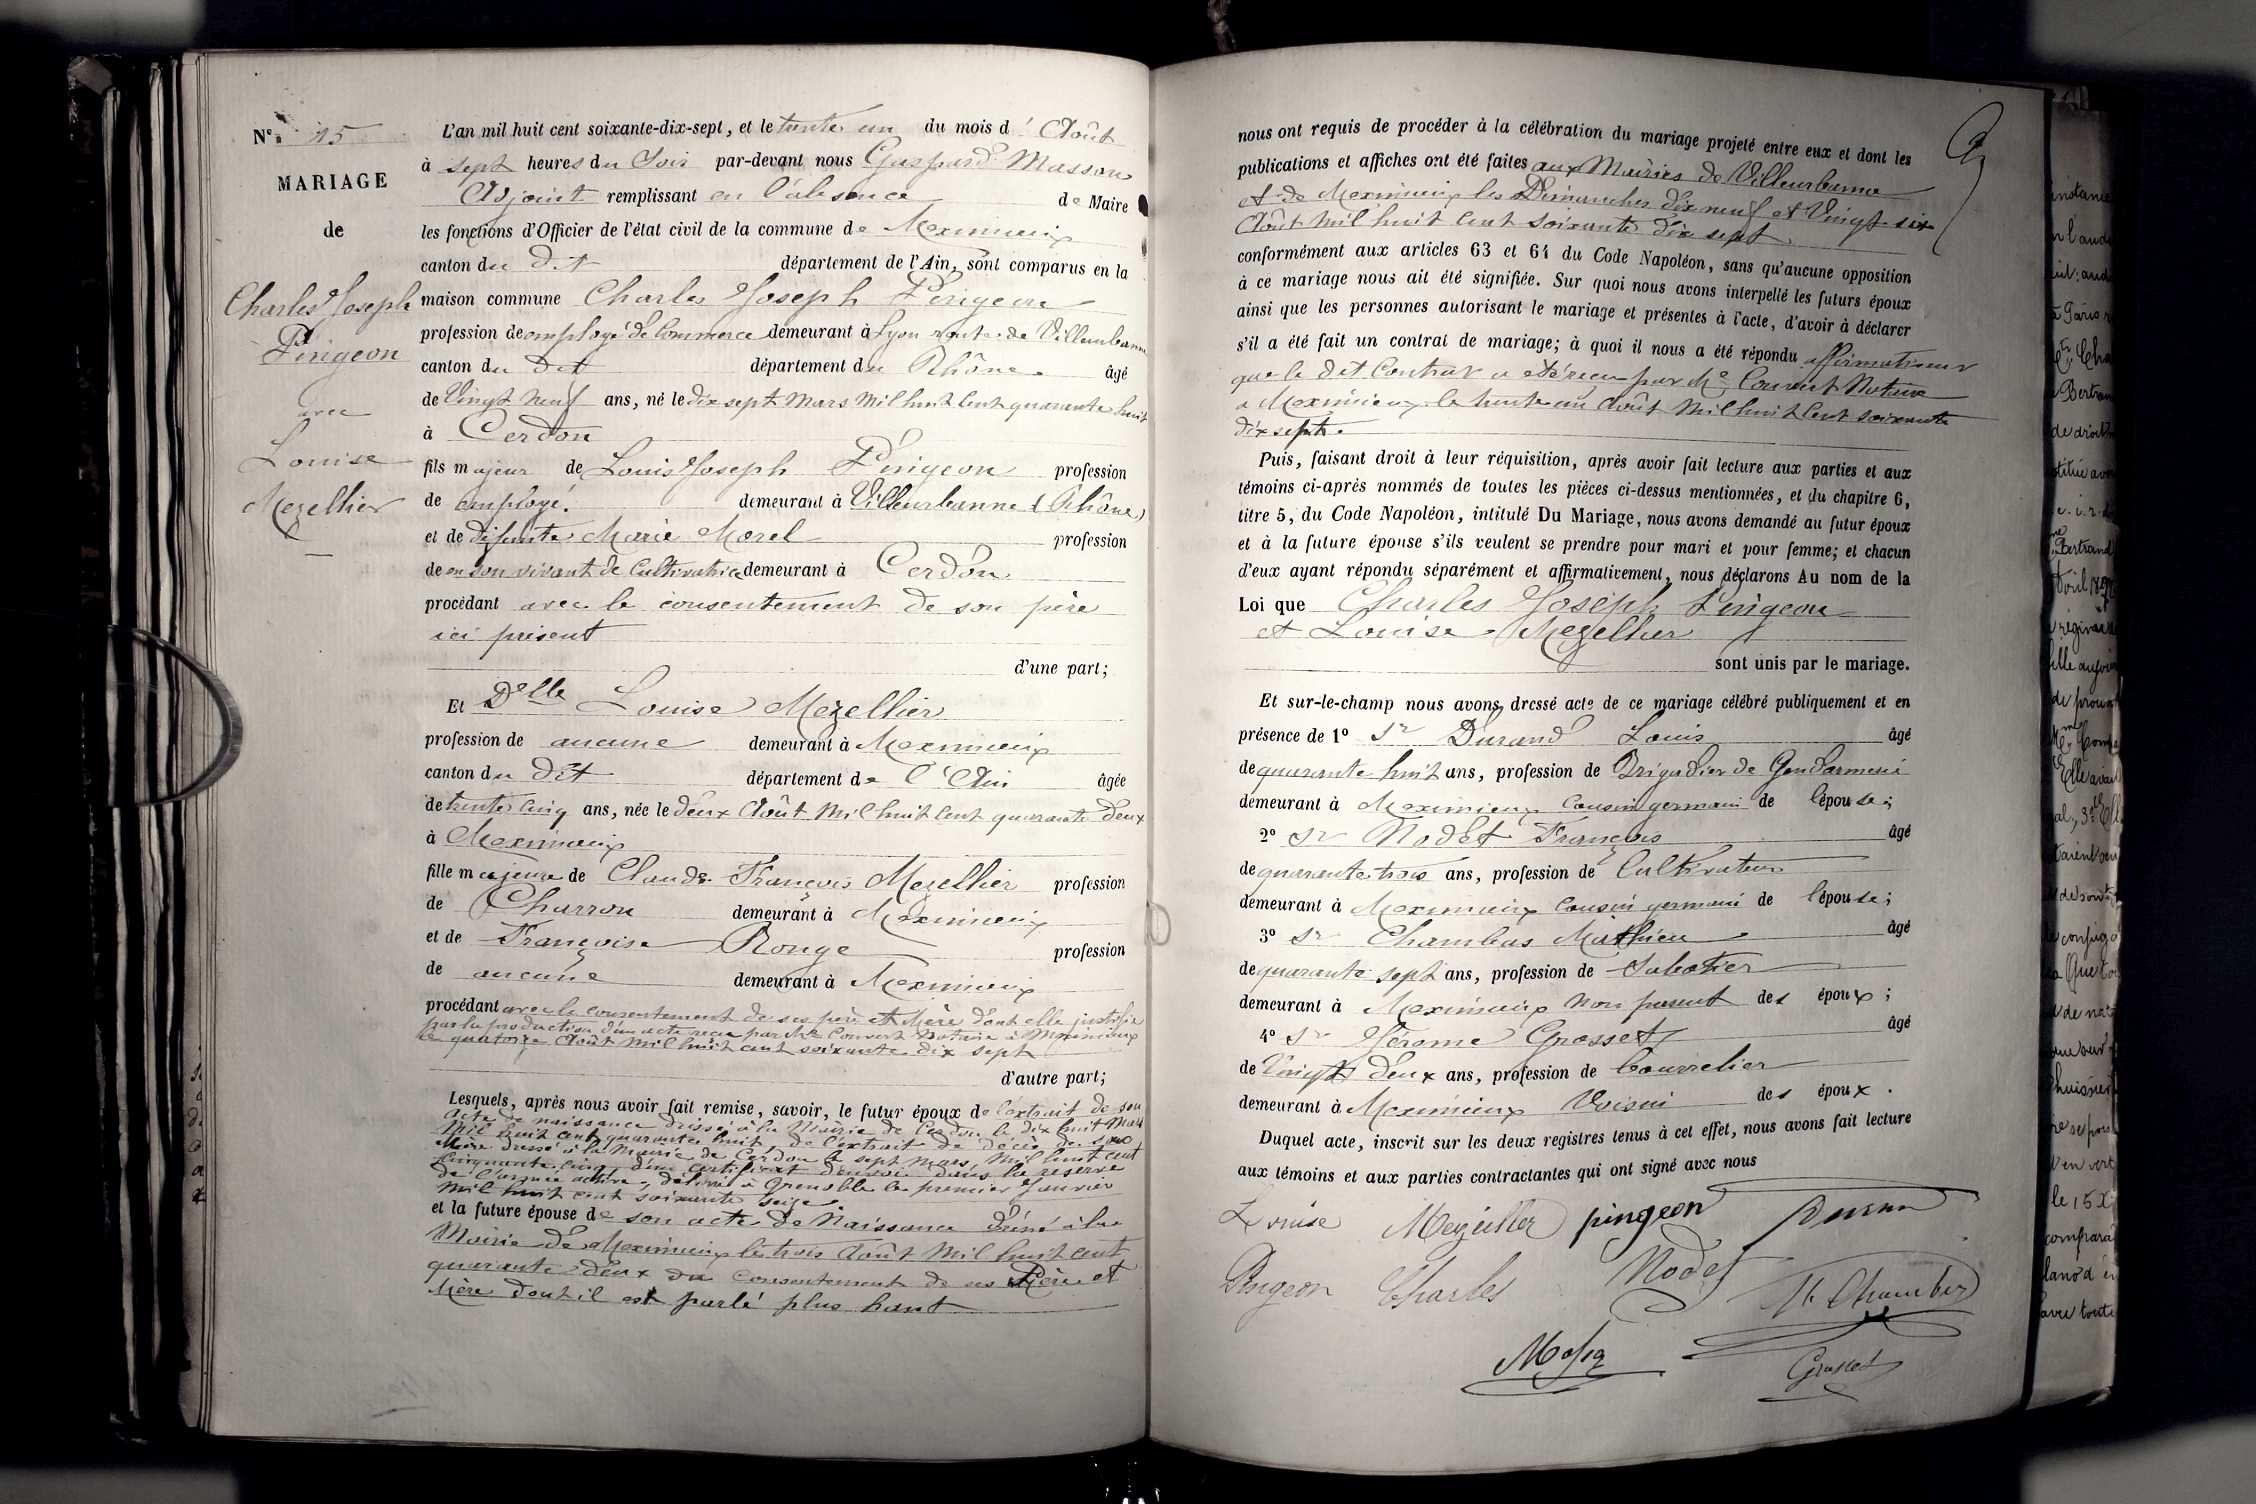 N° 15
MARIAGE
de
Charles Joseph
Pingeon
avec
Louise
Mezellier
L'an mil huit cent soixante-dix-sept, et le trente un du mois d'Août
à sept heures du Soir par-devant nous Gaspard Masson
Adjoint remplissant en l'absence de Maire
les fonctions d'Officier de l'état civil de la commune de Meximieux
canton du dit département de l'Ain, sont comparus en la
maison commune Charles Joseph Pingeon
profession de employé de Commerce demeurant à Lyon route de Villeurbanne
canton du dit département du Rhône âgé
de Vingt neuf ans, né le dix sept Mars Mil huit cent quarante huit
à Cerdon
fils majeur de Louis Joseph Pingeon profession
de employé demeurant à Villeurbanne (Rhône)
et de défunte Marie Morel profession
de en son vivant de Cultivatrice demeurant à Cerdon
procédant avec le consentement de son père
ici présent
d'une part;
Et Delle Louise Mezellier
profession de aucune demeurant à Meximieux
canton du dit département de l'Ain âgée
de trente cinq ans, née le deux Août Mil huit cent quarante deux
à Meximieux
fille majeure de Claude François Mezellier profession
de Charron demeurant à Meximieux
et de Françoise Rouge profession
de aucune demeurant à Meximieux
procédant avec le consentement de ses père et Mère dont elle justifie
par la production d'un acte reçu par Me Convert Notaire à Meximieux
le quatorze Août Mil huit cent soixante dix sept
d'autre part;
Lesquels, après nous avoir fait remise, savoir, le futur époux de l'extrait de son
Acte de naissance dressé à la Mairie de Cerdon le dix huit Mars
Mil huit cent quarante huit, de l'extrait de décès de sa
Mère dressé à la Mairie de Cerdon le sept mars Mil huit cent
cinquante cinq d'un certificat d'envoi dans la réserve
de l'armée active, délivré à Grenoble le premier Janvier
Mil huit cent soixante seize.
et la future épouse de son acte de Naissance à la
Mairie de Meximieux le trois Août Mil huit cent
quarante deux du consentement de ses Père et
Mère dont il est parlé plus haut
nous ont requis de procéder à la célébration du mariage projeté entre eux et dont les
publications et affiches ont été faites aux Mairies de Villeurbanne
et de Meximieux les Dimanches dix neuf et Vingt six
Août Mil huit cent soixante dix sept.
conformément aux articles 63 et 64 du Code Napoléon, sans qu'aucune opposition
à ce mariage nous ait été signifiée. Sur quoi nous avons interpellé les futurs époux
ainsi que les personnes autorisant le mariage et présentes à l'acte, d'avoir à déclarer
s'il a été fait un contrat de mariage; à quoi il nous a été répondu
que le dit Contrat a été reçu par Me Convert Notaire
à Meximieux le trente un Août Mil huit cent soixante
dix sept.
Puis, faisant droit à leur réquisition, après avoir fait lecture aux parties et aux
témoins ci-après nommés de toutes les pièces ci-dessus mentionnées, et du chapitre 6,
titre 5, du Code Napoléon, intitulé Du Mariage, nous avons demandé au futur époux
et à la future épouse s'ils veulent se prendre pour mari et pour femme; et chacun
d'eux ayant répondu séparément et affirmativement, nous déclarons Au nom de la
Loi que Charles Joseph Pingeon
et Louise Mezellier
sont unis par le mariage.
Et sur-le-champ nous avons dressé acte de ce mariage célébré publiquement et en
présence de 1° Sr Durand Louis âgé
de quarante huit ans, profession de Brigadier de Gendarmerie
demeurant à Meximieux Cousin germain de l'épouse;
2° Sr Nodet François âgé
de quarante trois ans, profession de Cultivateur
demeurant à Meximieux Cousin germain de l'épouse;
3° Sr Chambas Mathieu âgé
de quarante sept ans, profession de Sabotier
demeurant à Meximieux Non parent des époux;
4° Sr Jérome Grosset âgé
de Vingt deux ans, profession de Bourrelier
demeurant à Meximieux Voisin des époux.
Duquel acte, inscrit sur les deux registres tenus à cet effet, nous avons fait lecture
aux témoins et aux parties contractantes qui ont signé avec nous
Louise Mezellier pingeon Durand
Pingeon Charles Nodet
Grosset